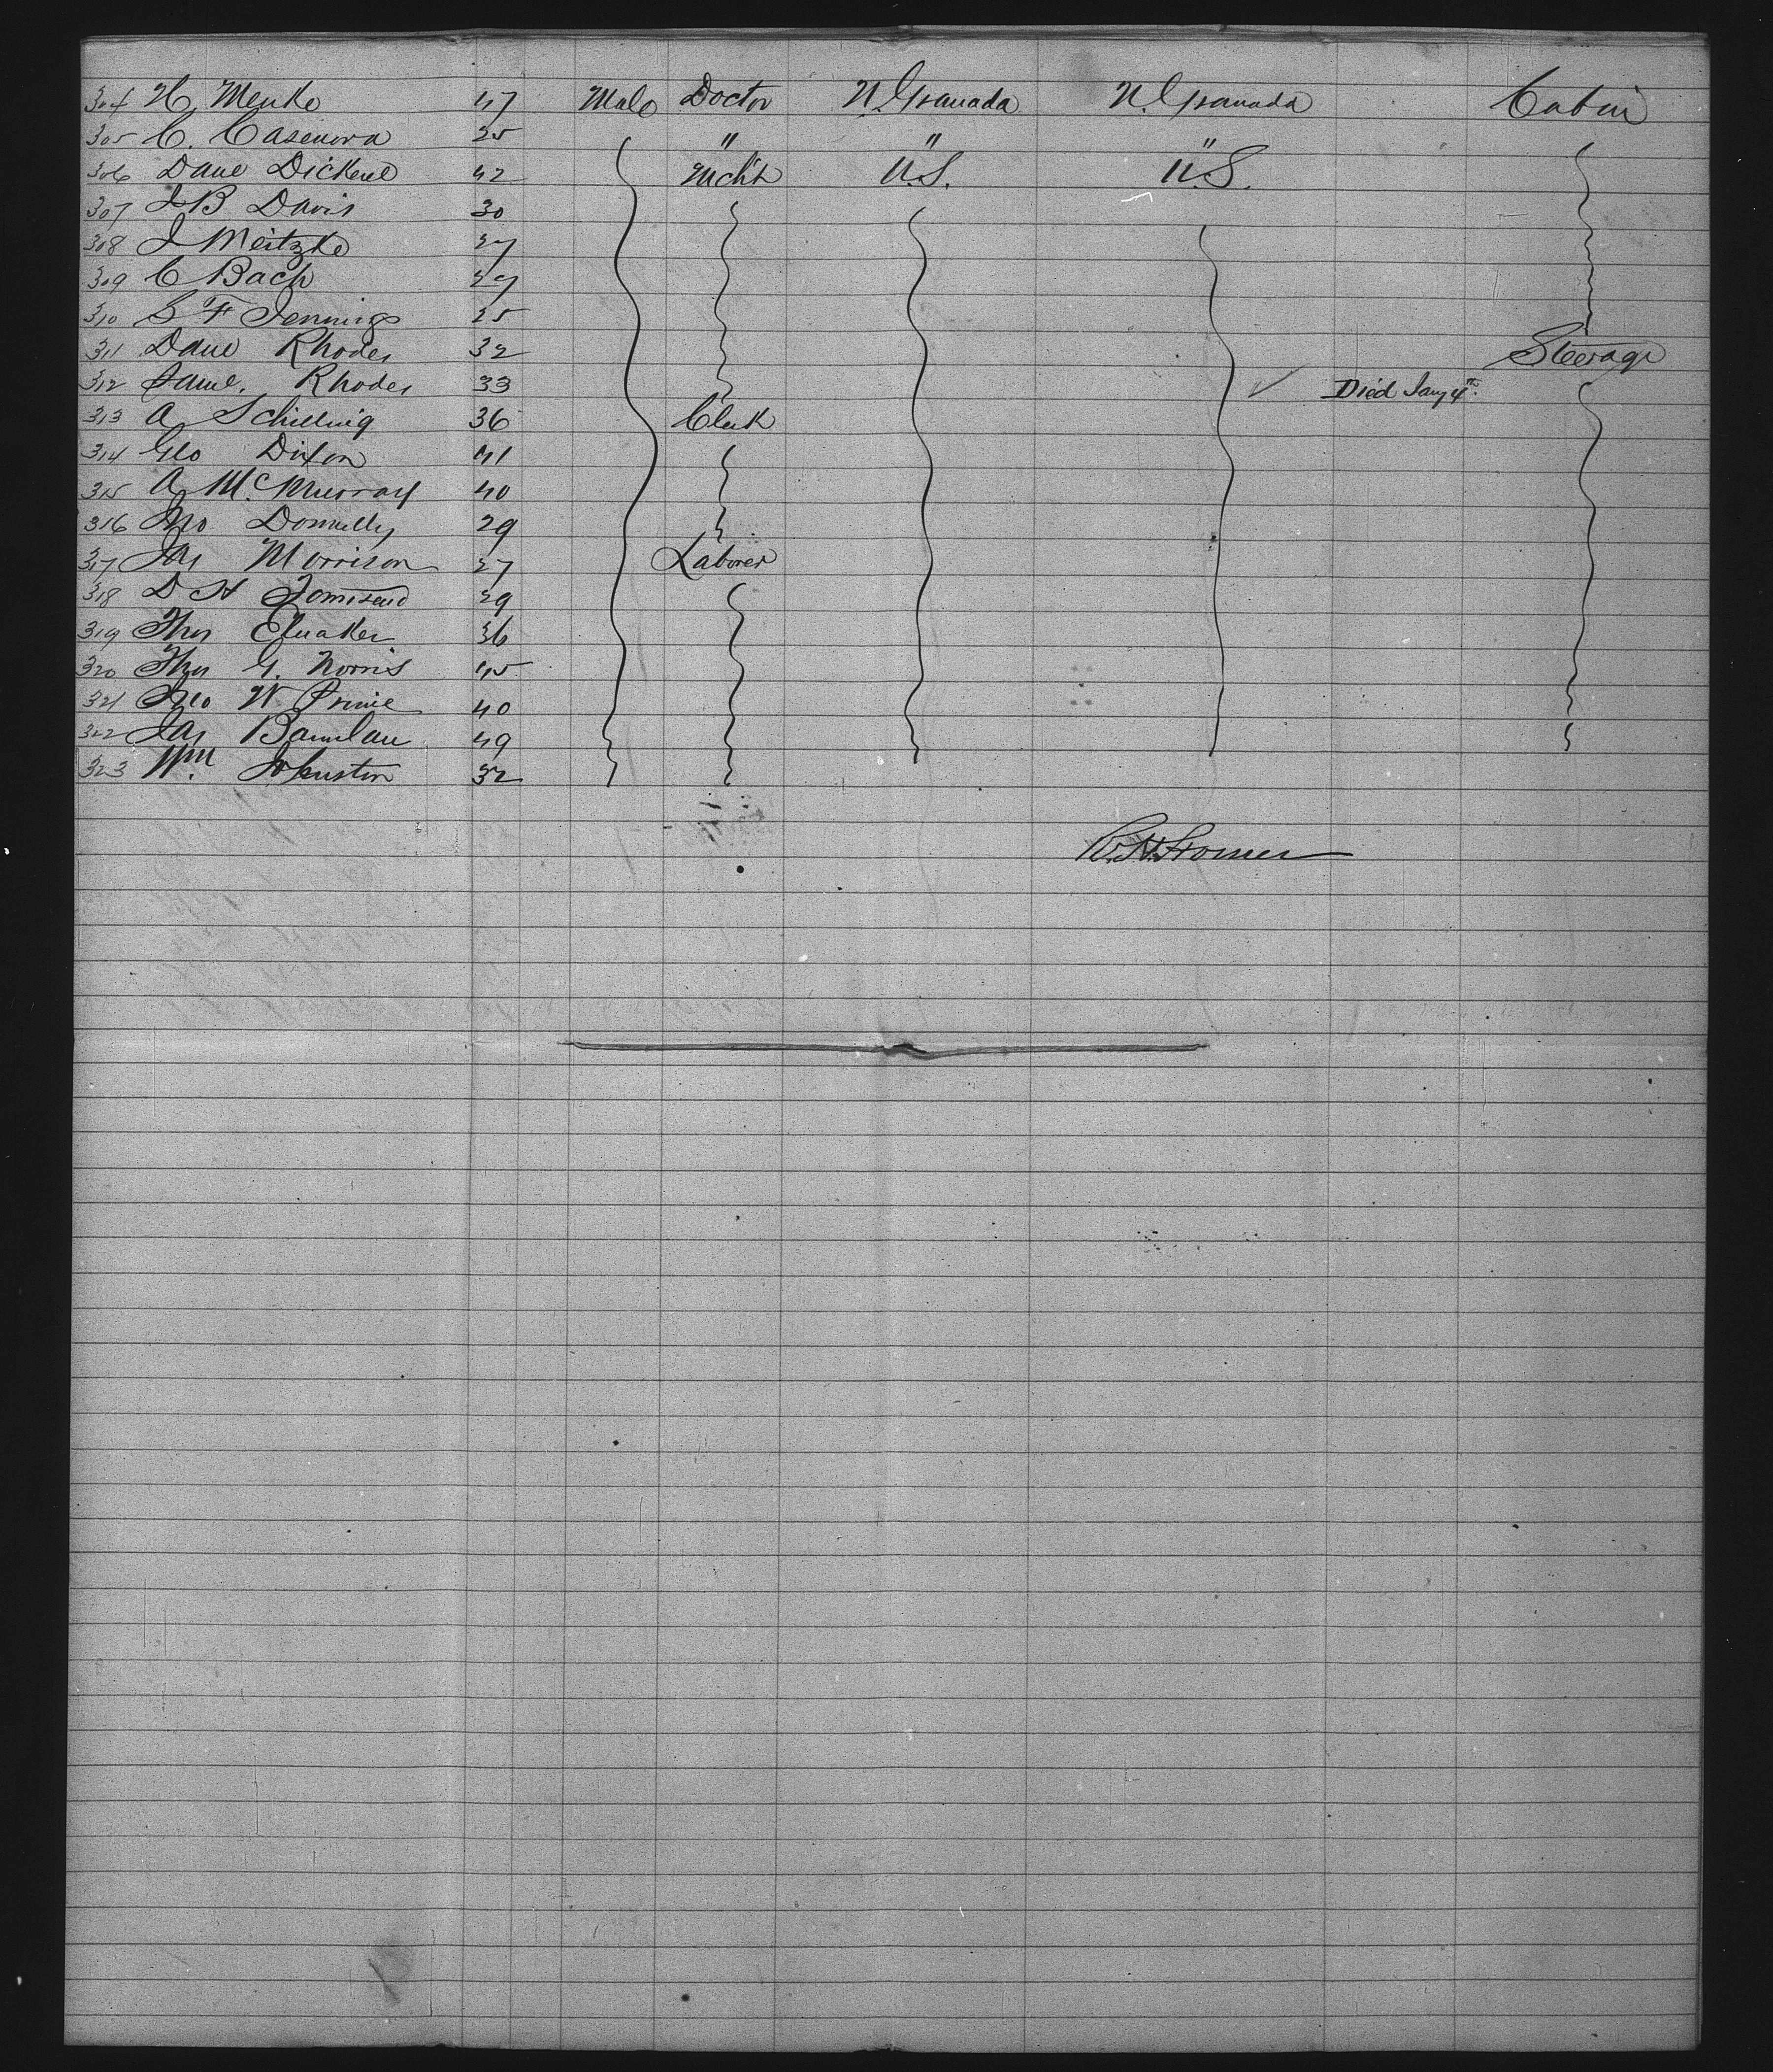 304 H. Menke 47 Male Doctor N. Granada N. Granada Cabin
305 C. Casenova 25 " " "
306 Danl Dickene 42 Mcht U.S. U.S.
307 J B Davis 30
308 J Meitzke 37
309 C Bach 29
310 S F Jennings 25
311 Danl Rhodes 32 Steerage
312 Saml. Rhodes 33 Died Jany 4th.
313 A Schilling 36 Clerk
314 Geo Dixon 41
315 A McMurray 40
316 Jno Donnelly 29
317 Jas Morrison 27 Laborer
318 D H Townsend 29
319 Thos Quaker 36
320 Thos G. Norris 45
321 Geo W Prince 40
322 Jas 49
323 Wm. Johnston 32